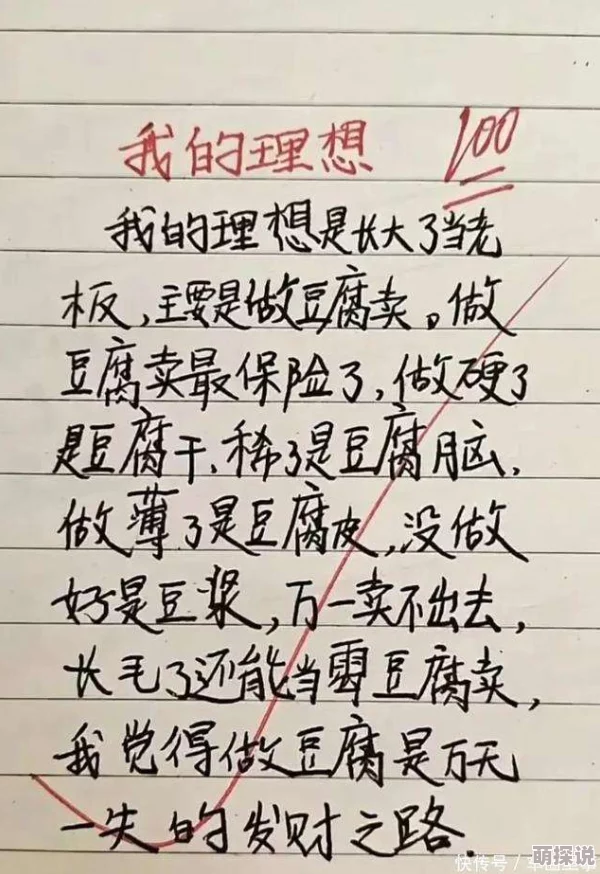 我的理想 100
我的理想是长大了当老
板,主要是做豆腐卖。做
豆腐卖最保险了,做硬了
是豆腐干,稀了是豆腐脑,
做薄了是豆腐皮,没做
好是豆浆,万一卖不出去,
长毛了还能当霉豆腐卖,
我觉得做豆腐是万无
一失的发财之路.
快传号/
萌探说